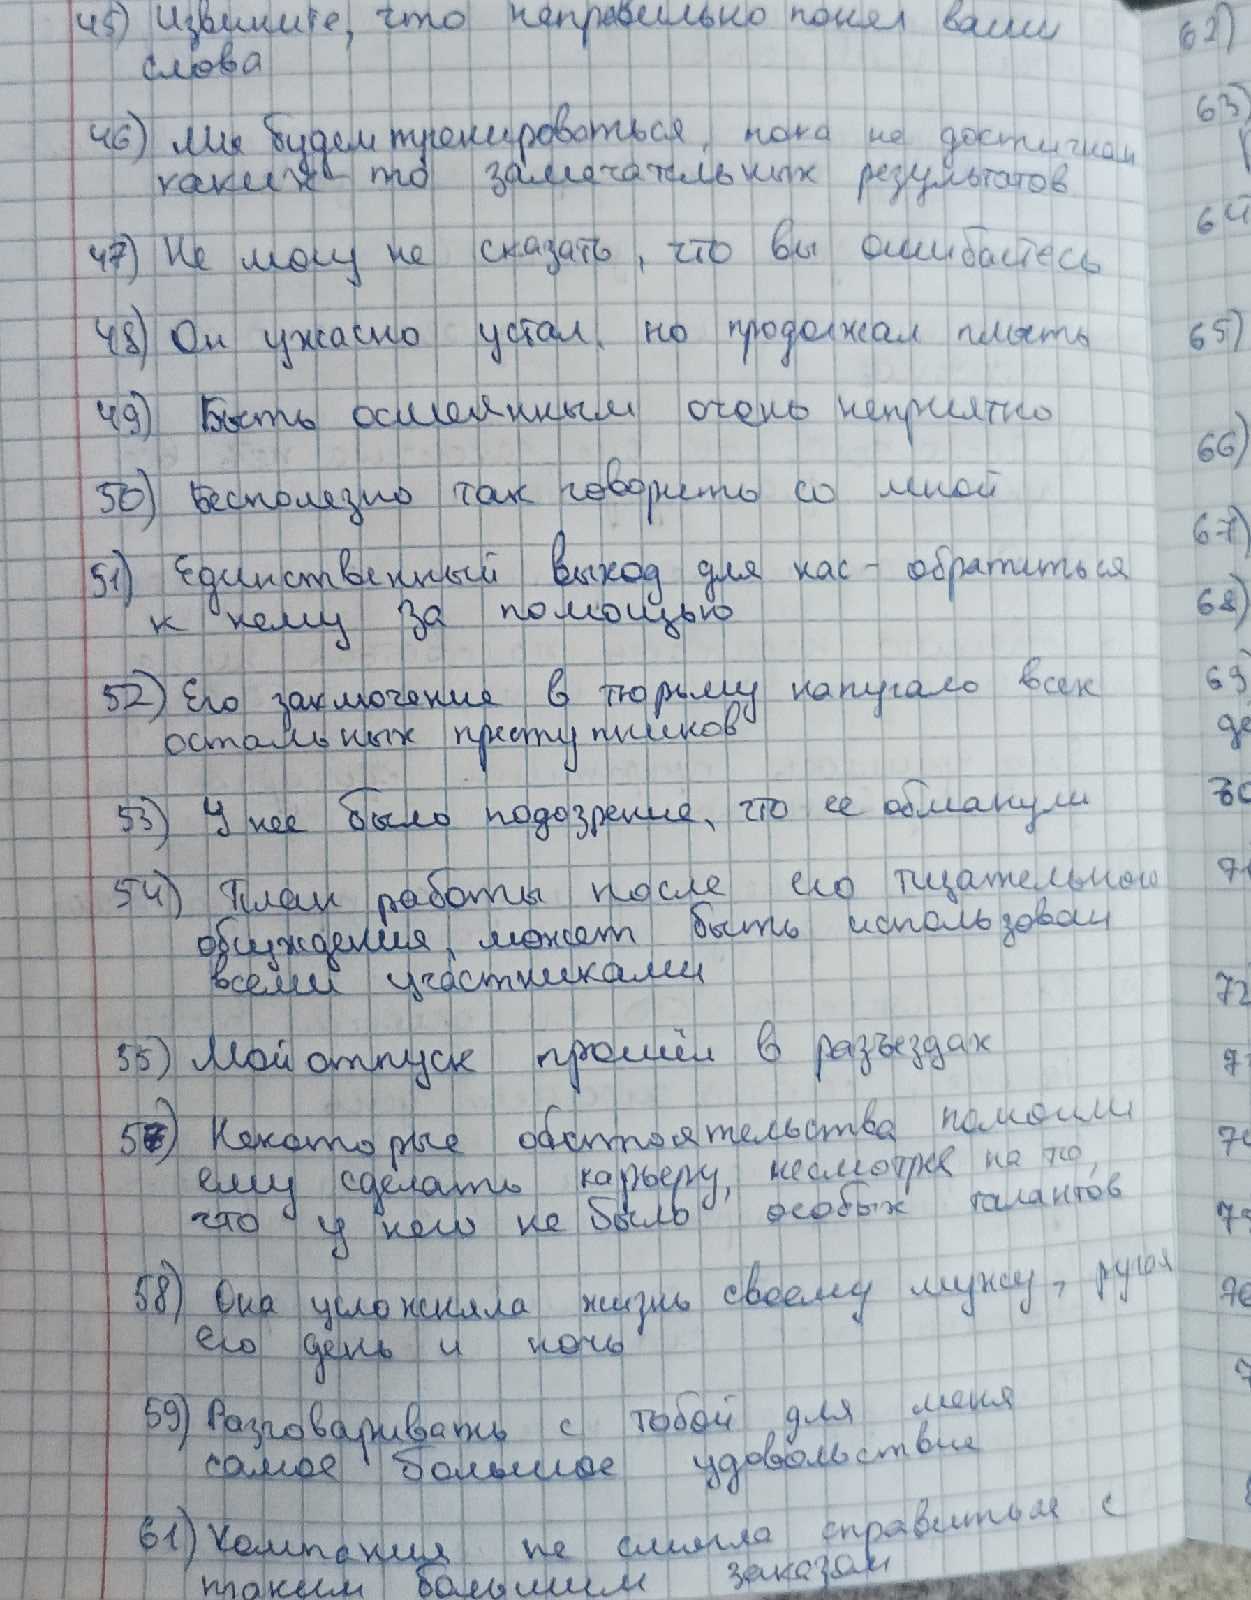 45) Извините, что неправильно понял ваши
слова
46) Мы будем тренироваться, пока не достигнем
каких-то замечательных результатов
47) Не могу не сказать, что вы ошибаетесь
48) Он ужасно устал, но продолжал плыть
49) Быть осмеянным очень неприятно
50) Бесполезно так говорить со мной
51) Единственный выход для нас - обратиться
к нему за помощью
52) Его заключение в тюрьму напугало всех
остальных преступников
53) У нее было подозрение, что ее обманули
54) План работы после его тщательного
обсуждения, может быть использован
всеми участниками
55) Мой отпуск прошёл в разъездах
57) Некоторые обстоятельства помогли
ему сделать карьеру, несмотря на то,
что у него не было особых талантов
58) Она усложняла жизнь своему мужу, ругая
его день и ночь
59) Разговаривать с тобой для меня
самое большое удовольствие
61) Компания не смогла справиться с
таким большим заказом
62)
63)
64
65)
66)
67)
68)
69)
де
70
71
72